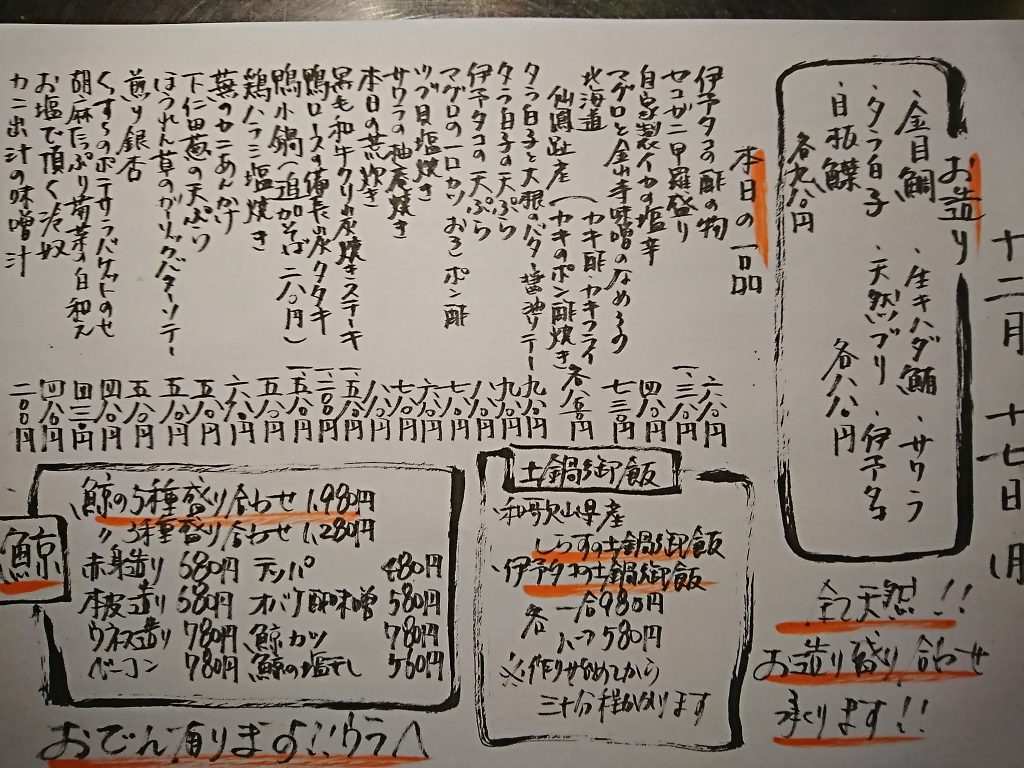 十二月 十七日 月
お造り
・金目鯛 ・生キハダ鮪 ・サワラ
・タラ白子 ・天然ブリ ・伊予タコ
・目板鰈
各九八〇円
各八八〇円
全て天然!!
お造り盛り合わせ
承ります!!
本日の一品
伊予タコの酢の物 六八〇円
セコガニ甲羅盛り 一、三八〇円
自家製イカの塩辛 四八〇円
マグロと金山寺味噌のなめろう 七三〇円
北海道
仙鳳趾産 (カキ酢・カキフライ
カキのポン酢焼き 各八五〇円
タラ白子と大根のバター醤油ソテー 九八〇円
タラ白子の天ぷら 九八〇円
伊予タコの天ぷら 八八〇円
マグロの一口カツ おろしポン酢 七八〇円
ツブ貝塩焼き 六八〇円
サワラの柚庵焼き 七八〇円
本日の荒炊き 八八〇円
黒毛和牛クリの炭焼きステーキ 一、五八〇円
鴨ロースの備長炭タタキ 一、二〇〇円
鴨小鍋(追加そば 二八〇円) 一、五八〇円
鶏ハラミ塩焼き 五八〇円
蕪のカニあんかけ 六八〇円
下仁田葱の天ぷら 五八〇円
ほうれん草のガーリックバターソテー 五八〇円
煎り銀杏 五八〇円
くずし豆のポテサラバゲットのせ 四八〇円
胡麻たっぷり春菊の白和え 四三〇円
お塩で頂く冷奴 四八〇円
カニ出汁の味噌汁 二〇〇円
土鍋御飯
・和歌山県産
しらすの土鍋御飯
・伊予タコの土鍋御飯
各 一合980円
ハーフ580円
※作りはじめてから
三十分程かかります
鯨
鯨の5種盛り合わせ 1,980円
〃 3種盛り合わせ 1,280円
赤身造り 680円 テッパ 480円
本皮造り 580円 オバケ酢味噌 580円
ウネス造り 780円 鯨カツ 780円
ベーコン 780円 鯨の塩干し 560円
おでん有ります!!ウラへ